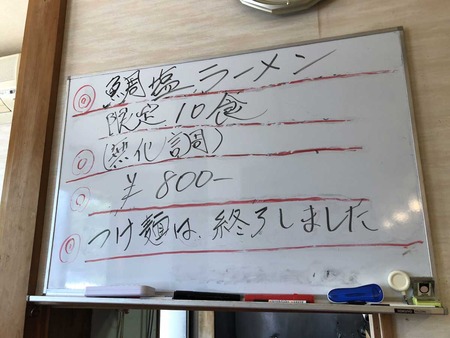 ◎ 鯛塩ラーメン
限定10食
◎ (無化調)
◎ ¥800-
◎ つけ麺は、終了しました